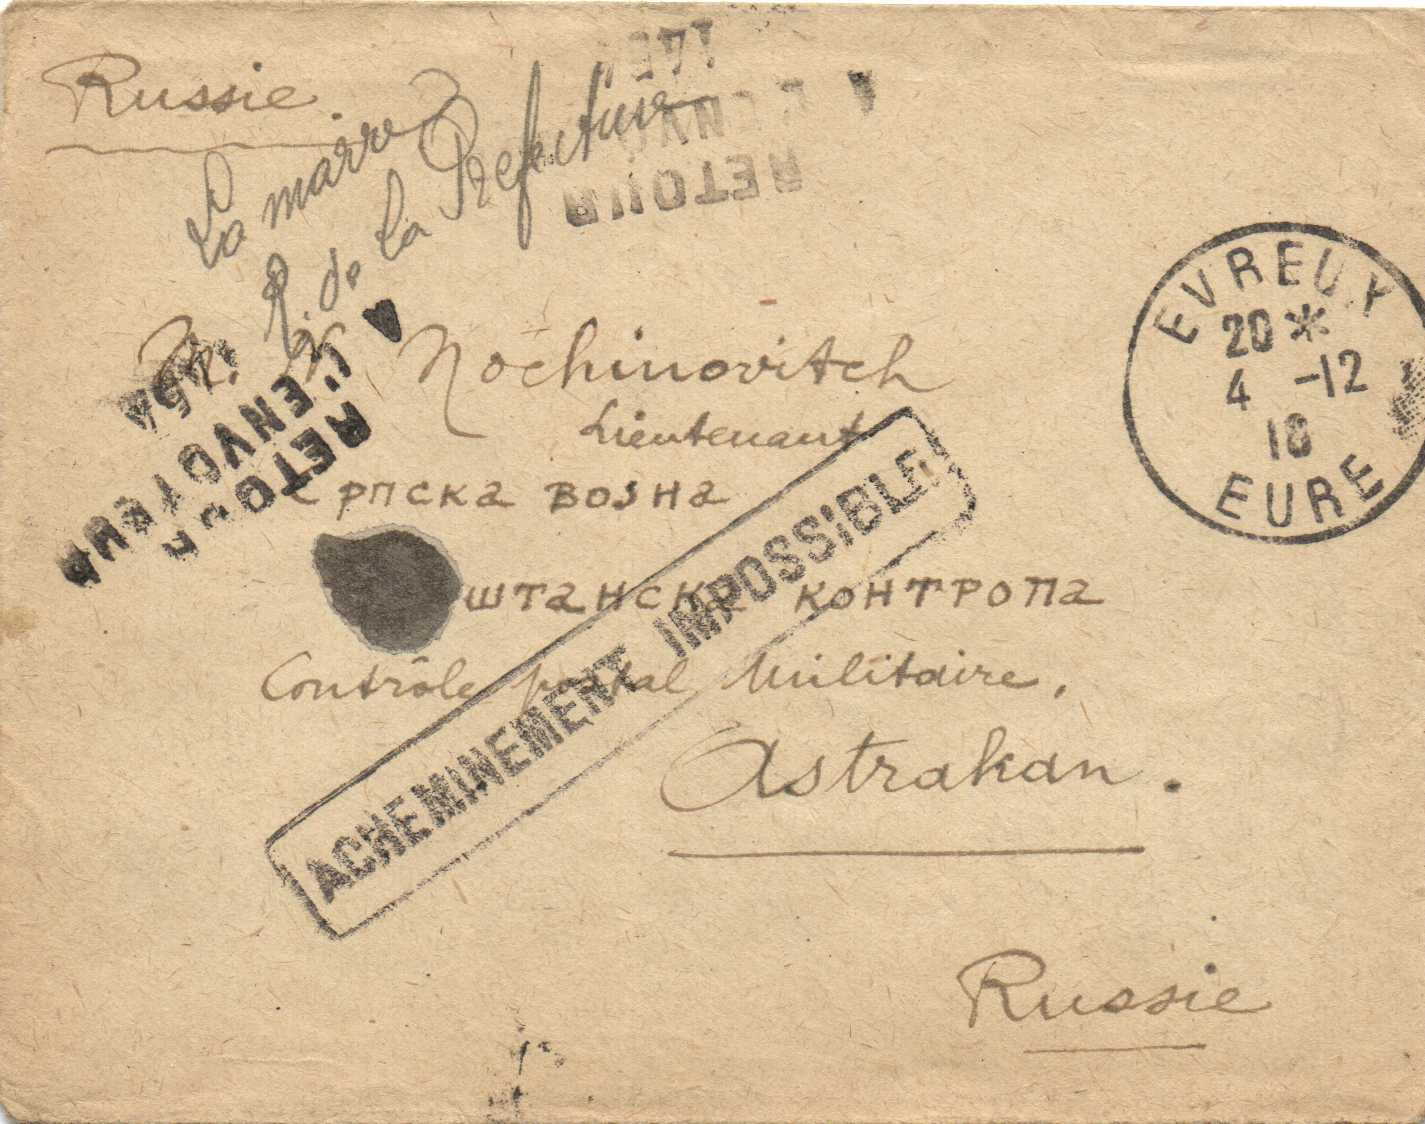 Russie
La marre
R. de la Prefecture
RETOUR
A L'ENVOYEUR
RETOUR
L'ENVOYEUR
EVREUX
20 *
4 -12
18
EURE
Nochinovitch
Lieutenant
Српска војна
штанска контрола
Contrôle postal Militaire.
ACHEMINEMENT IMPOSSIBLE
Astrakan.
Russie